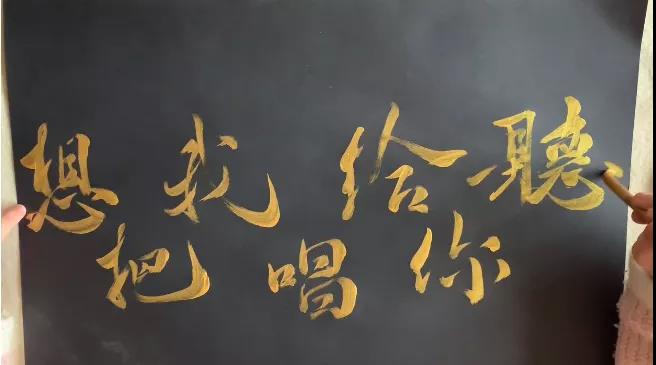 想我给聽
把唱你